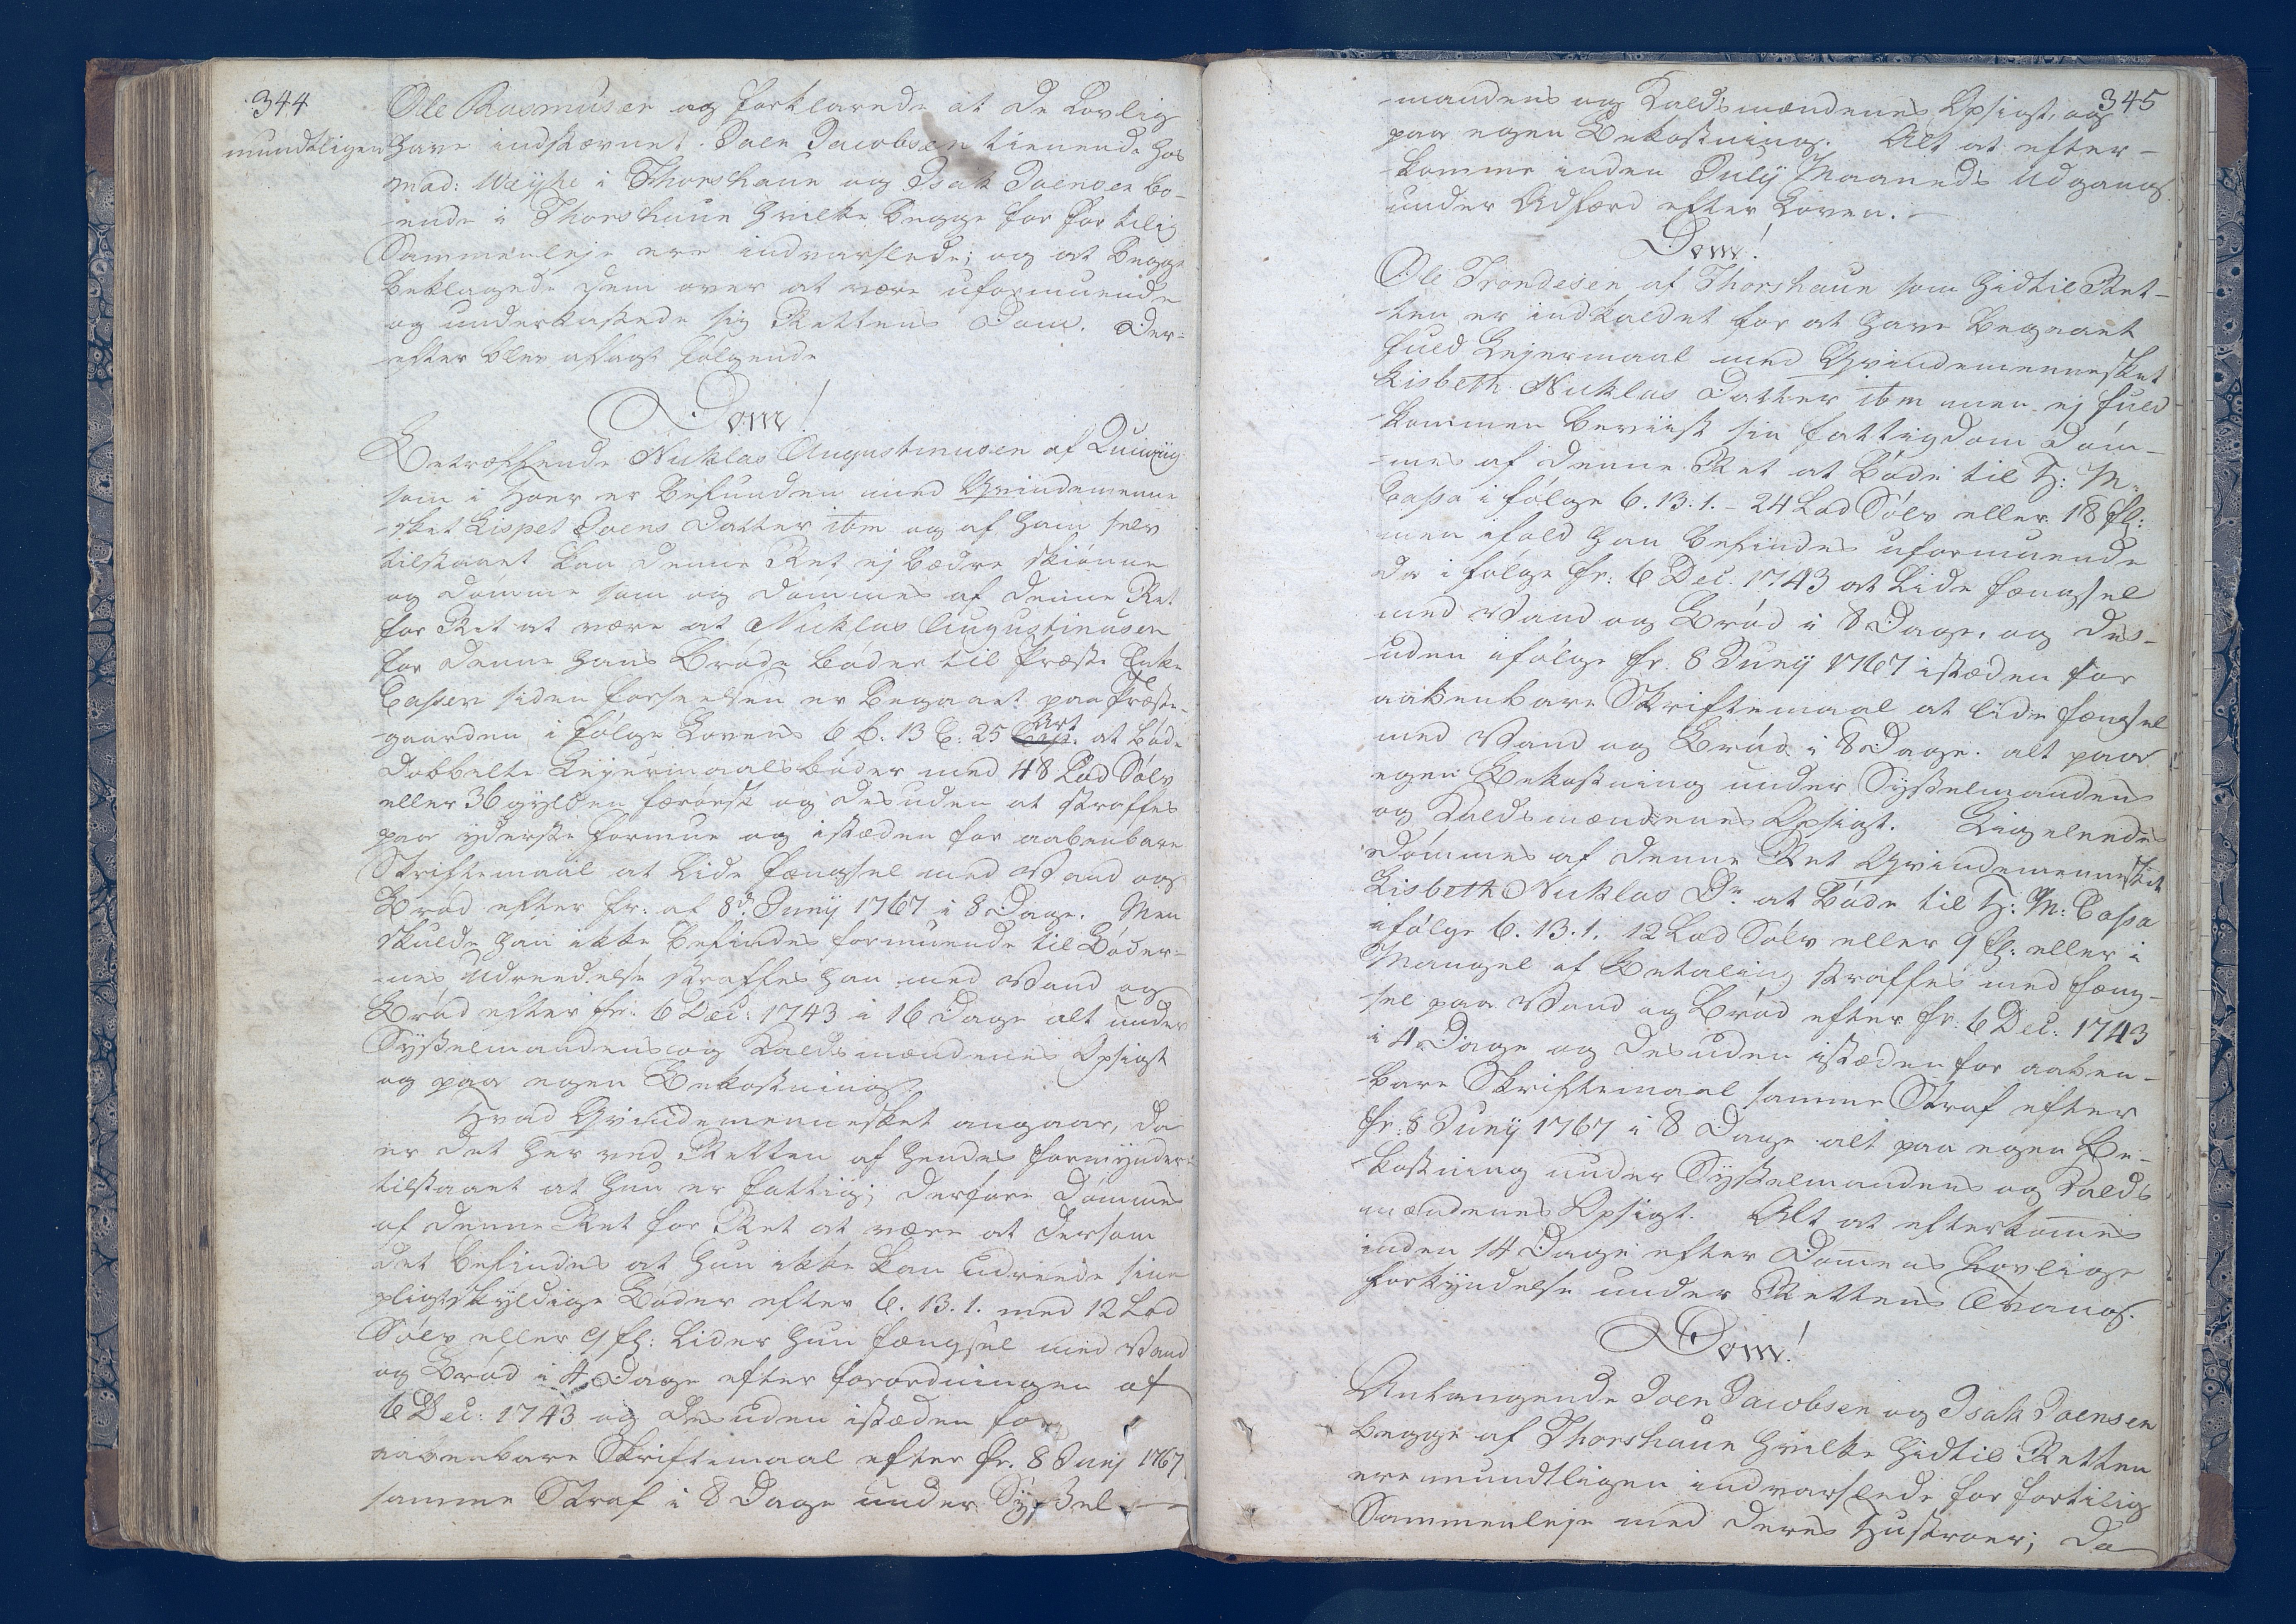 344
Ole Rasmusen og forklarede at de Lovlig
mundtligen have indstævnet Joen Jacobsen tienende hos
Mad: Weyhe i Thorshaun og Isak Joensen bo-
-ende i Thorshaun hvilke begge for for tilig
Sammenleje ere indvarslede; og at begge
beklagede dem over at være uformuende
og underkastede sig Rettens Dom. Der-
efter blev afsagt følgende
Dom!
Betræffende Nicklas Augustinusen af Quiviig
som i Hoer er befunden med Qvindemenne
-sket Lispet Joens Datter ibm og af ham selv
tilstaaet kan denne Ret ej bædre skiønne
og dømme som og dømmes af denne Ret
for Ret at være at Nicklas Augustinusen
for denne hans Brøde bøder til Præste Enke
Cassen siden forseelsen er begaaet paa Præste-
-gaarden i følge Lovens 6 b. 13 C. 25 Art at bøde
dobbelte Lejermaalsbøder med 48 Lod Sølv
eller 36 gylden færøesk og desuden at straffes
paa yderste formue og istæden for aabenbare
Skriftemaal at lide fængsel med Vand og
Brød efter fr: af 8d. Junij 1767 i 8 Dage. Men
skulde han ikke befindes formuende til Bøder-
-nes Udreedelse straffes han med Vand og
Brød efter fr: 6 Dec: 1743 i 16 Dage alt under
Sysselmandens og Kaldsmændenes Opsigt
og paa egen Bekostning.
Hvad Qvindemennesket angaar, da
er det her ved Retten af hendes formynder
tilstaaet at hun er fattig; derfore dømmes
af denne Ret for Ret at være at dersom
det befindes at hun ikke kan udreede sine
pligtskyldige Bøder efter 6. 13. 1. med 12 Lod
Sølv eller 9 fl: lider hun fængsel med Vand
og Brød i 4 Dage efter forordningen af
6 Dec: 1743 og desuden istæden for
aabenbare Skriftemaal efter fr. 8 Junij 1767
samme Straf i 8 Dage under Syssel-
345
-mandens og Kaldsmændenes Opsigt, og
paa egen Bekostning. Alt at efter-
komme inden Julij Maaneds Udgang
under Adfærd efter Loven.
Dom!
Ole Trondesen af Thorshaun som hidtil Ret-
ten er indkaldet for at have begaaet
fuld Lejermaal med Qvindemennesket
Lisbeth Nicklas Datter ibm men ej fuld
kommen beviist sin fattigdom døm-
-mes af denne Ret at bøde til H: M:
Cassa i følge 6. 13. 1. - 24 Lod Sølv eller 18 fl:
men ifald han befindes uformuende
da i følge fr: 6 Dec. 1743 at lide fængsel
med Vand og Brød i 8 Dage, og des-
uden ifølge fr. 8 Junij 1767 istæden for
aabenbare Skriftemaal at lide fængsel
med Vand og Brød i 8 Dage. alt paa
egen Bekostning under Sysselmandens
og Kaldsmændenes Opsigt. Ligeleedes
dømmes af denne Ret Qvindemennesket
Lisbeth Nicklas Dr. at bøde til H: M: Cassa
ifølge 6. 13. 1. 12 Lod Sølv eller 9 fl: eller i
Mangel af Betaling straffes med fæng-
-sel paa Vand og Brød efter fr. 6 Dec: 1743
i 4 Dage og desuden istæden for aaben-
bare Skriftemaal samme Straf efter
fr: 8 Junij 1767 i 8 Dage alt paa egen Be-
kostning under Sysselmandens og Kalds
mændenes Opsigt. Alt at efterkomes
inden 14 Dage efter Domens Lovlige
forkyndelse under Rettens Tvang.
Dom!
Anlangende Joen Jacobsen og Isak Joensen
begge af Thorshaun hvilke hidtil Retten
ere mundtligen indvarslede for fortilig
Sammenleje med deres Hustroer; da